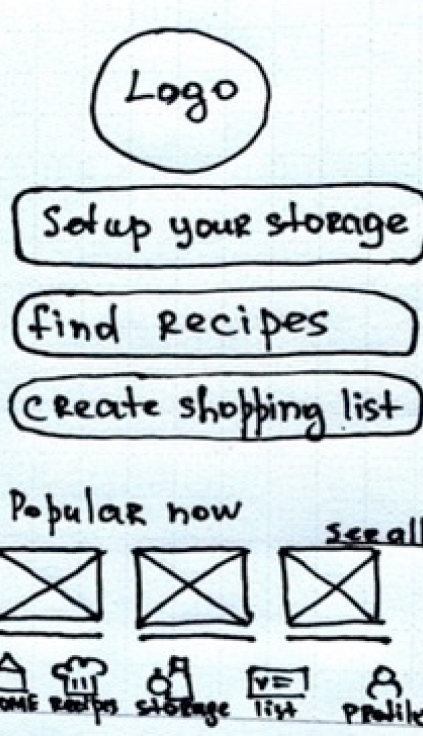 Logo
Setup your storage
find Recipes
create shopping list
Popular now
see all
HOME Recipes storage list Profile